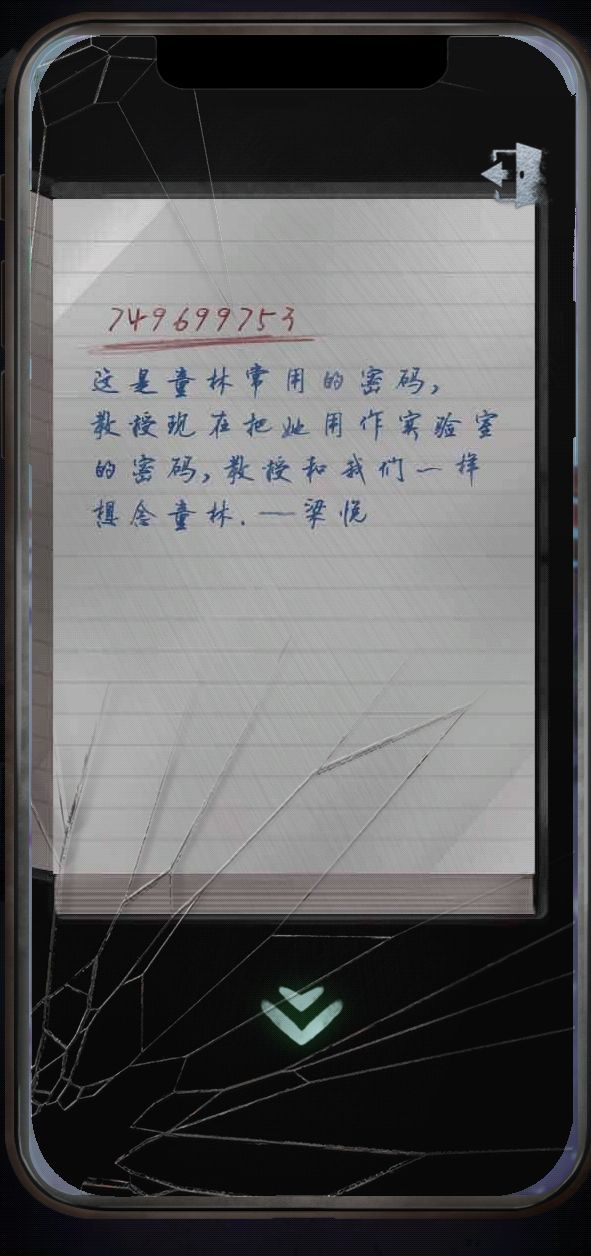 749699753
这是童林常用的密码,
教授现在把她用作实验室
的密码,教授和我们一样
想念童林.——梁悦